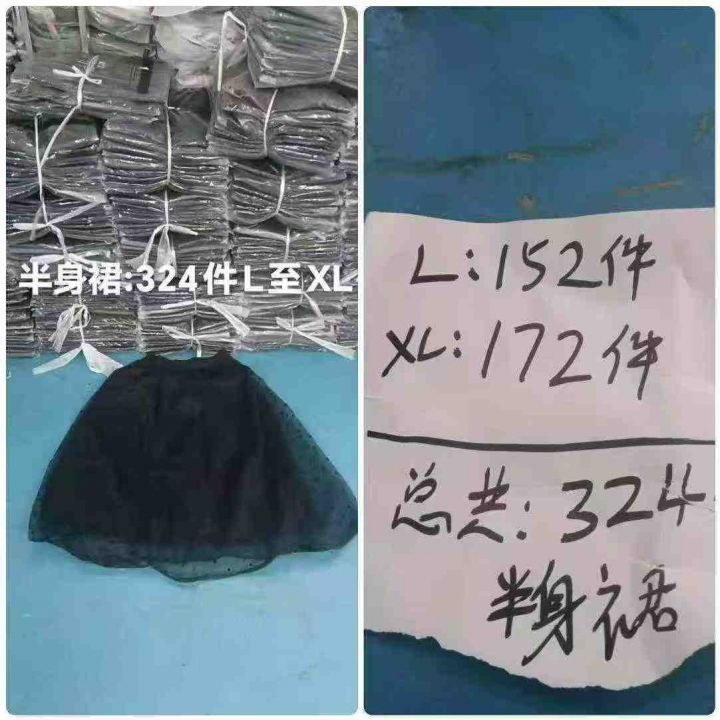 半身裙:324件L至XL
L:152件
XL:172件
总共:324
半身裙